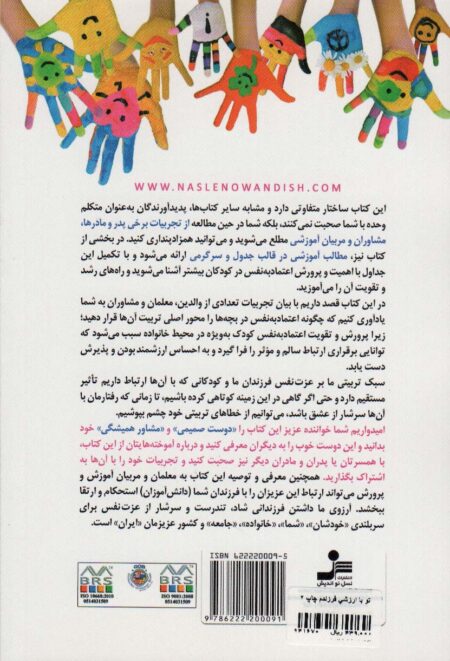 WWW.NASLENOWANDISH.COM
این کتاب ساختار متفاوتی دارد و مشابه سایر کتاب‌ها، پدیدآورندگان به‌عنوان متکلم
وحده با شما صحبت نمی‌کنند، بلکه شما در حین مطالعه از تجربیات برخی پدر و مادرها،
مشاوران و مربیان آموزشی مطلع می‌شوید و می‌توانید همزادپنداری کنید. در بخشی از
کتاب نیز، مطالب آموزشی در قالب جدول و سرگرمی ارائه می‌شود و با تکمیل این
جداول با اهمیت و پرورش اعتمادبه‌نفس در کودکان بیشتر آشنا می‌شوید و راه‌های رشد
و تقویت آن را می‌آموزید.
در این کتاب قصد داریم با بیان تجربیات تعدادی از والدین، معلمان و مشاوران به شما
یادآوری کنیم که چگونه اعتمادبه‌نفس در بچه‌ها را محور اصلی تربیت آن‌ها قرار دهید؛
زیرا پرورش و تقویت اعتمادبه‌نفس کودک به‌ویژه در محیط خانواده سبب می‌شود که
توانایی برقراری ارتباط سالم و مؤثر را فرا گیرد و به احساس ارزشمند‌بودن و پذیرش
دست یابد.
سبک تربیتی ما بر عزت‌نفس فرزندان ما و کودکانی که با آن‌ها ارتباط داریم تأثیر
مستقیم دارد و حتی اگر گاهی در این زمینه کوتاهی کرده باشیم، تا زمانی که رفتارمان با
آن‌ها سرشار از عشق باشد، می‌توانیم از خطاهای تربیتی خود چشم بپوشیم.
امیدواریم شما خواننده عزیز این کتاب را «دوست صمیمی» و «مشاور همیشگی» خود
بدانید و این دوست خوب را به دیگران معرفی کنید و درباره آموخته‌هایتان از این کتاب،
با همسرتان یا پدران و مادران دیگر نیز صحبت کنید و تجربیات خود را با آن‌ها به
اشتراک بگذارید. همچنین معرفی و توصیه این کتاب به معلمان و مربیان آموزش و
پرورش می‌تواند ارتباط این عزیزان را با فرزندان شما (دانش‌آموزان) استحکام و ارتقا
ببخشد. آرزوی ما داشتن فرزندانی شاد، تندرست و سرشار از عزت‌نفس برای
سربلندی «خودشان»، «شما»، «خانواده»، «جامعه» و کشور عزیزمان «ایران» است.
ISBN 622220009-5
9 786222 200091
BRS
BRS
ISO 9001:2008
0514031509
0514031509
نسل نو اندیش
تو با ارزشی فرزندم چاپ ۲